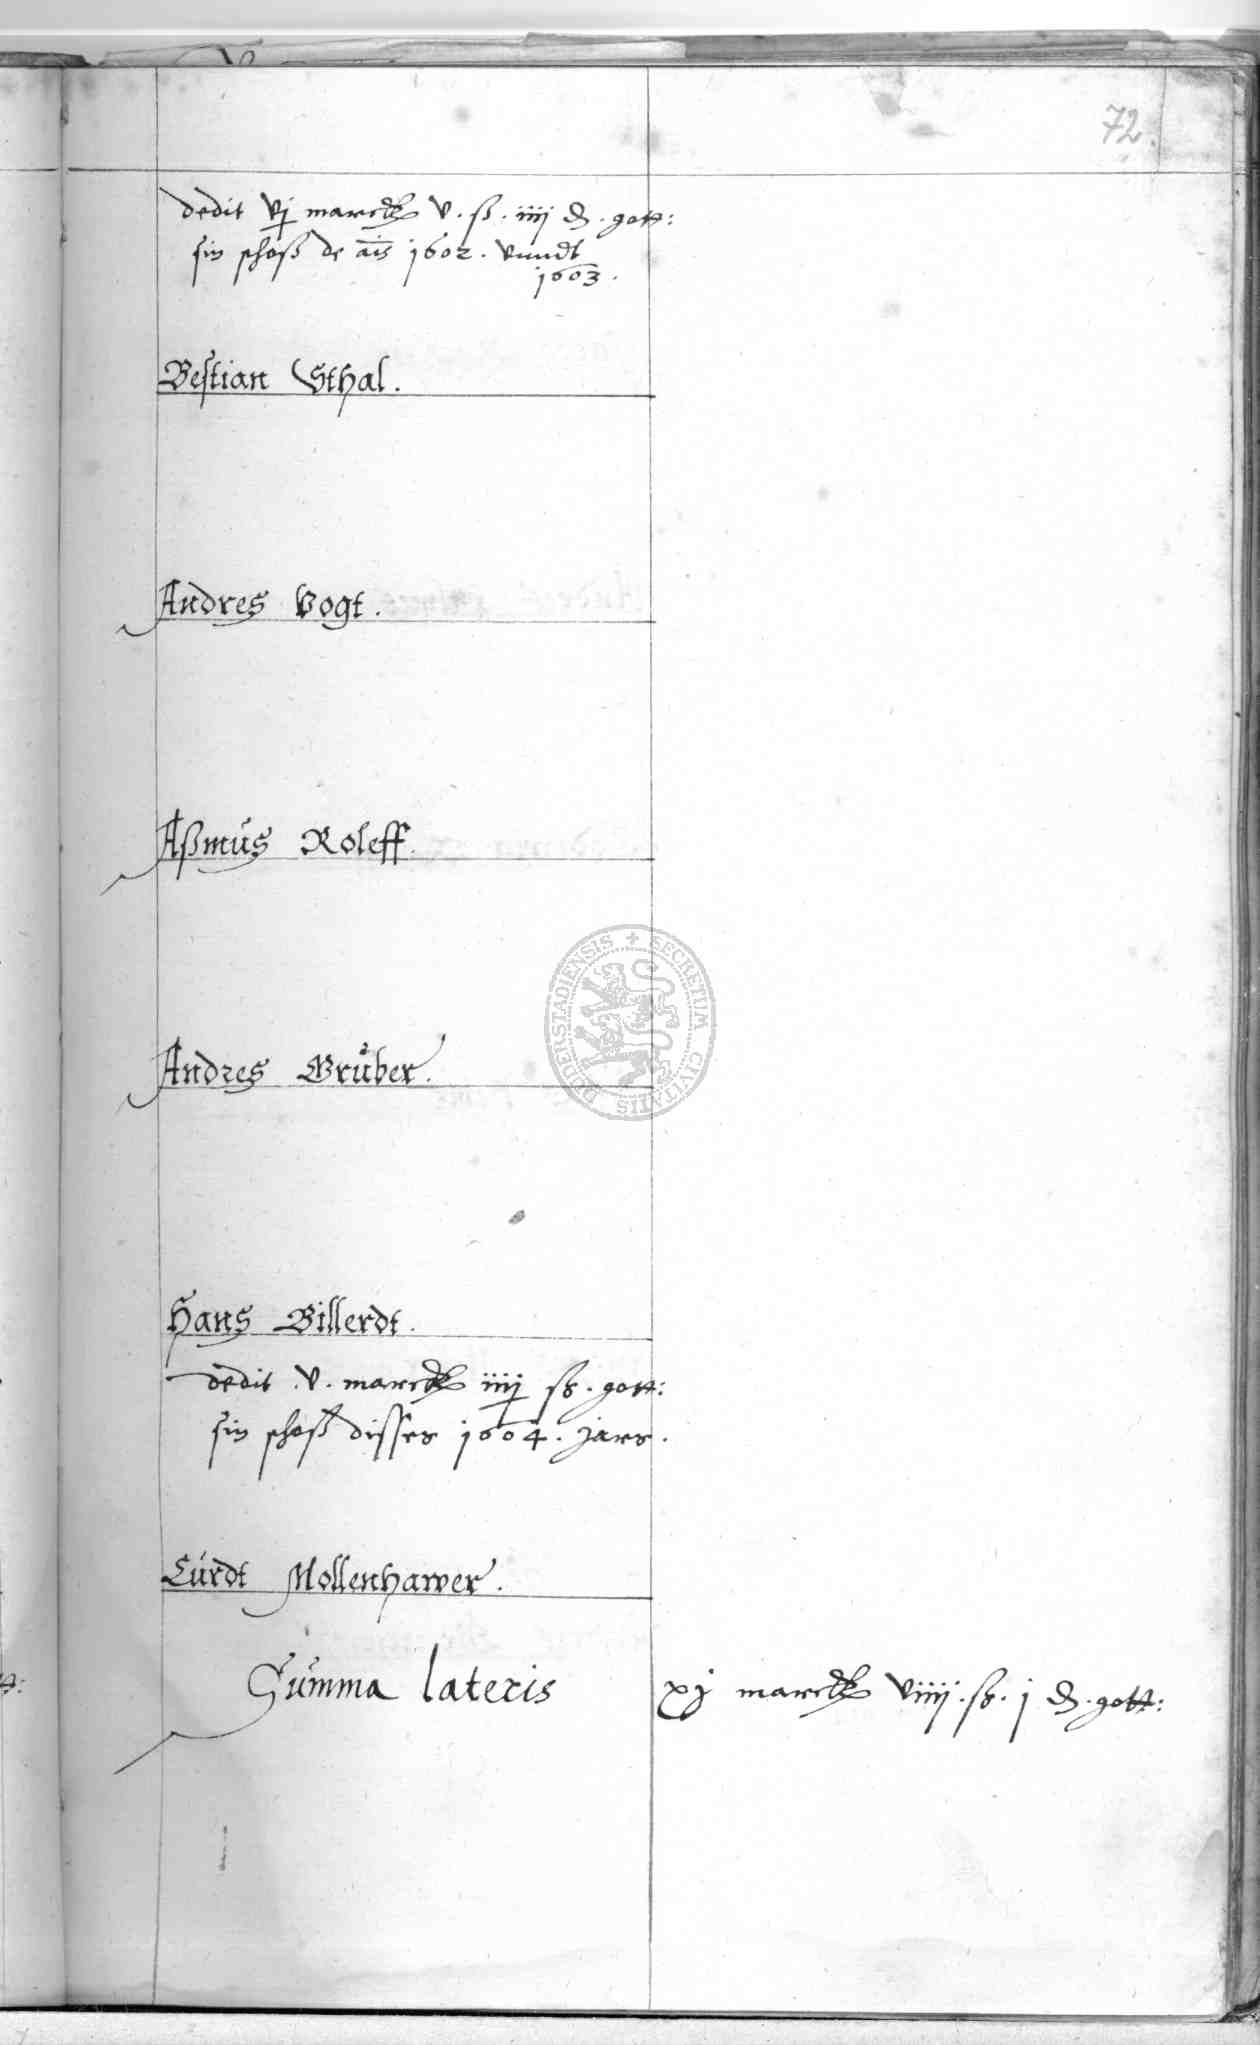 72.
dedit vj marck v. ß. iiij ₰. gott:
sin schoß de ais 1602. vnndt
1603.
Bestian Sthal.
Andres Vogt.
Aßmus Roleff.
Andres Gruber.
Hans Billerdt.
dedit .v. marck iiij ß. gott:
sin schoß disses 1604. jars.
Curdt Mollenhawer.
Summa lateris xj marck viiij. ß. j ₰. gott:
SECRETUM CIVITATIS DUDERSTADIENSIS +